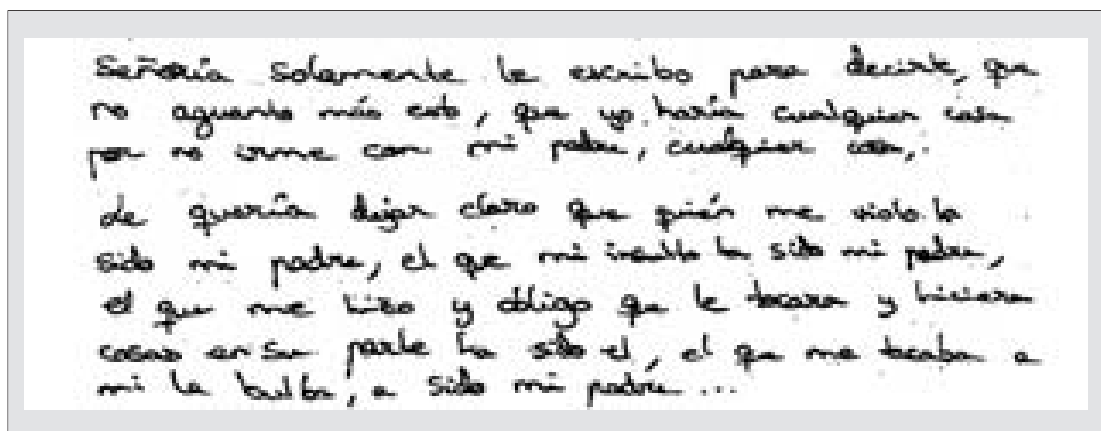 Señoría solamente le escribo para decirle, que
no aguanto más esto, que yo haría cualquier cosa
por no irme con mi padre, cualquier cosa,
de quería dejar claro que quién me violo ha
sido mi padre, el que mi insulto ha sido mi padre,
el que me hizo y obligo que le tocara y hiciera
cosas en su parte ha sido el, el que me tocaba a
mi la bulba, a sido mi padre...